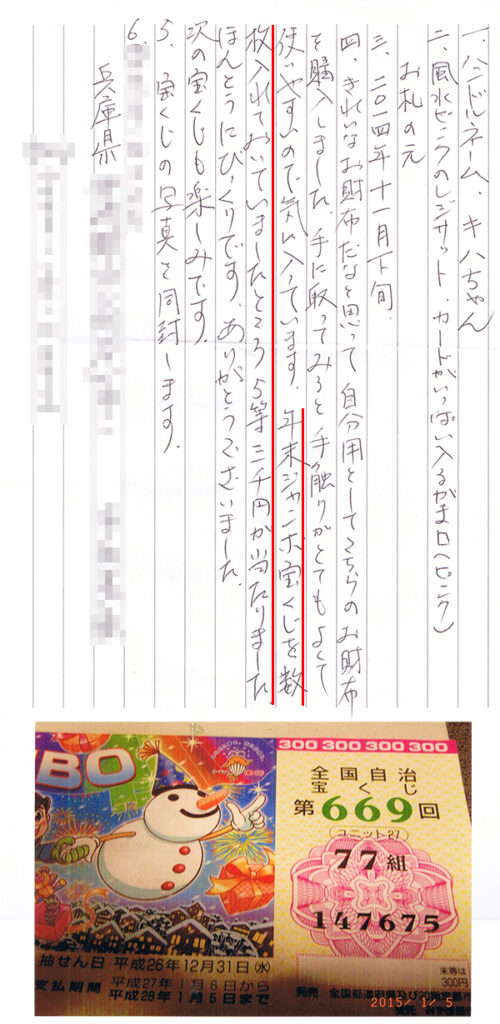 一、ハンドルネーム、キハちゃん
二、風水ピンクのレジサット、カードがいっぱい入るがま口(ピンク)
お札の元
三、二〇一四年十一月下旬
四、きれいなお財布だなと思って自分用としてこちらのお財布
を購入しました。手に取ってみると手触りがとてもよくて
使いやすいので気に入っています。年末ジャンボ宝くじを数
枚入れておいていましたところ5等三千円が当たりました
ほんとうにびっくりです。ありがとうございました。
次の宝くじも楽しみです。
5、宝くじの写真を同封します。
6、
兵庫県
BO
抽せん日 平成26年12月31日(水)
支払期間 平成27年1月6日から
平成28年1月5日まで
300 300 300 300
全国自治
宝くじ
第669回
ユニット27
77組
147675
末等は
300円
発売 全国都道府県及び20指定都市
2015/ 1/ 5